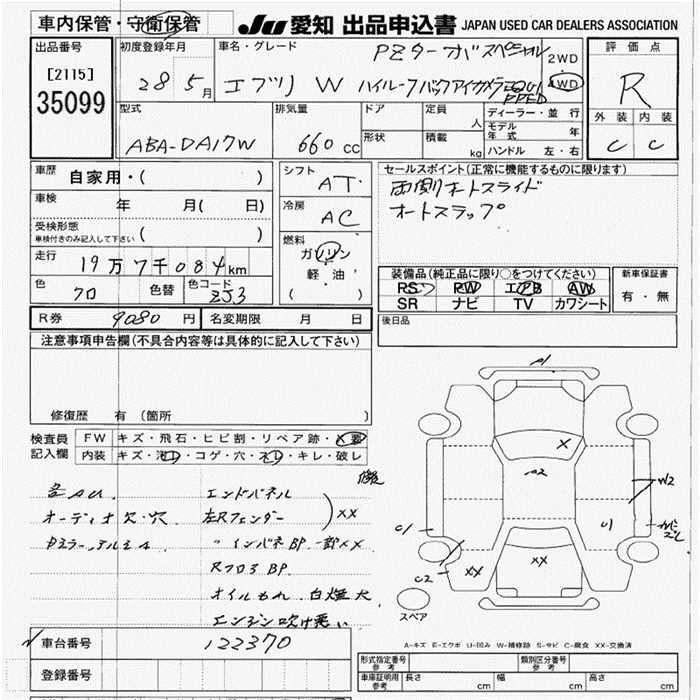 車内保管・守衛保管
JU 愛知 出品申込書 JAPAN USED CAR DEALERS ASSOCIATION
出品番号
[2115]
35099
初度登録年月
28 5月
車名・グレード
PZターボスペシャル
エブリ W ハイルーフバックアイカメラ
2WD
4WD
評価点
R
外装 内装
C C
型式
ABA-DA17W
排気量
660 CC
ドア
形状
定員
人
積載
kg
ディーラー・並行
モデル年式 年
ハンドル 左・右
車歴 自家用・( )
車検 年 月( 日)
受検形態
車検付きのみ記入して下さい ( )
走行 19万7千084km
色 クロ 色替 色コード ZJ3
シフト AT
冷房 AC
燃料 ガソリン
軽油
( )
セールスポイント(正常に機能するものに限ります)
両側オートスライド
オートステップ
装備品(純正品に限り○をつけてください)
PS PW エアB AW
SR ナビ TV カワシート
新車保証書
有・無
R券 9080 円 名変期限 月 日
後日品
注意事項申告欄(不具合内容等は具体的に記入して下さい)
修復歴 有(箇所 )
検査員記入欄
FW キズ・飛石・ヒビ割・リペア跡・X要
内装 キズ・汚レ・コゲ・穴・スレ・キレ・破レ
各AU.
オーディオ欠・穴
エンドパネル
左Rフェンダー
XX
〃 インパネBP 一部XX
RフロアBP
オイルもれ 白煙大
エンジン吹け悪い
A1
X
A2
W2
C1
U1
C2
XX
XX
スペア
A-キズ E-エクボ U-凹み W-補修跡 S-サビ C-腐食 XX-交換済
車台番号 122370
登録番号
形式指定番号 参考
類別区分番号 参考
車庫証明用 参考 長さ cm 幅 cm 高さ cm